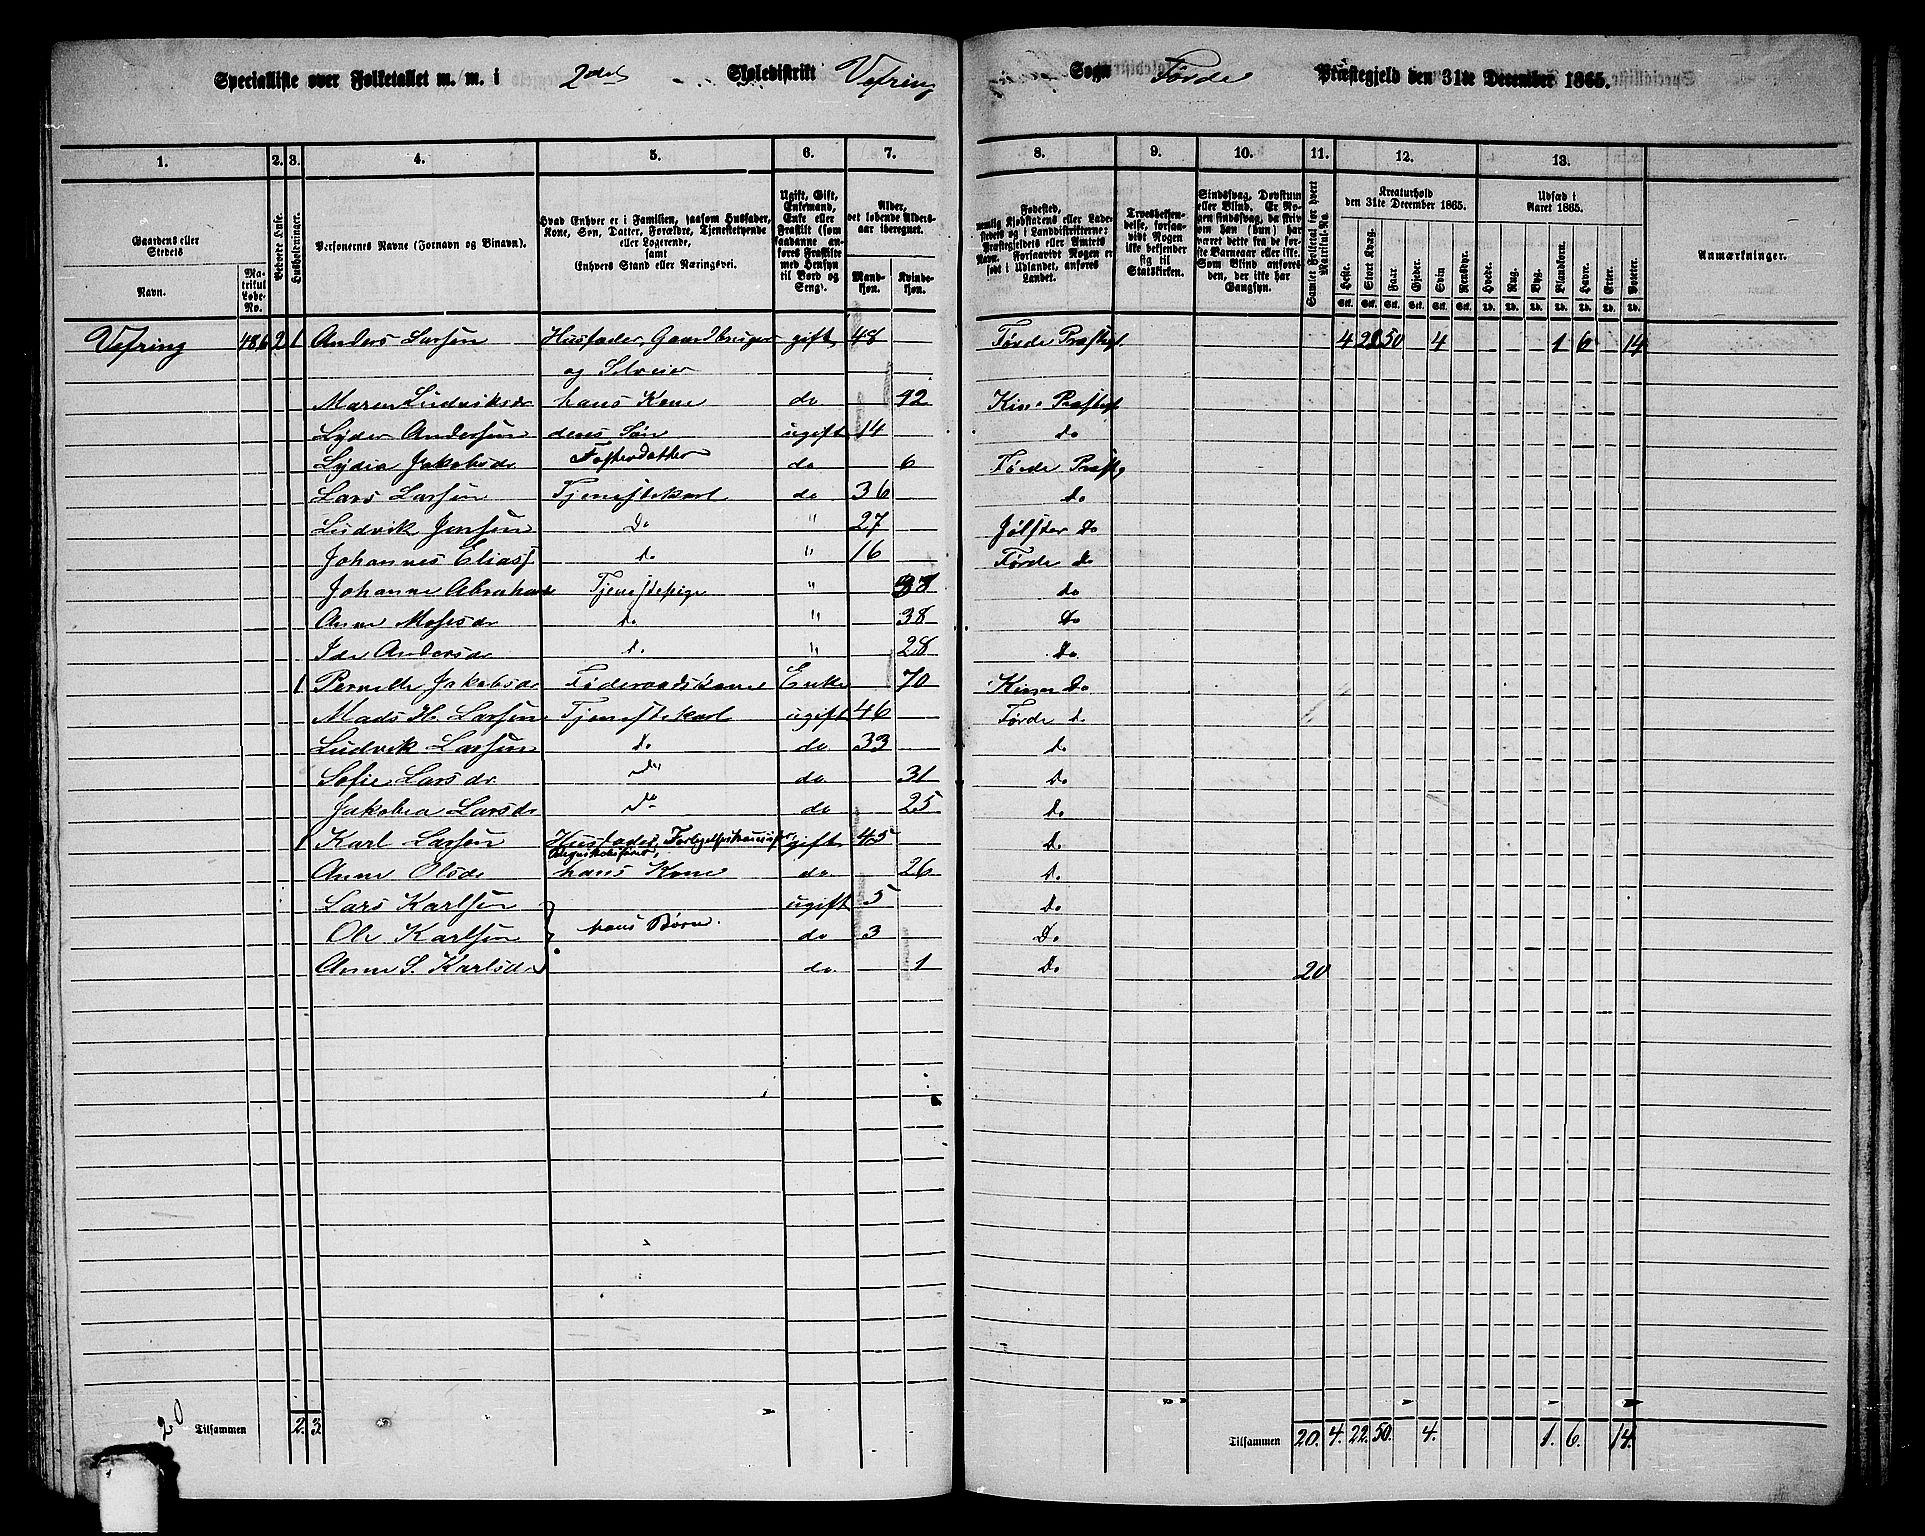 Specialliste over Folketallet m. m. i 2det Skoledistrikt Vefring Sogn Førde Præstegjeld den 31te December 1865.
1. 2. 3. 4. 5. 6. 7. 8. 9. 10. 11. 12. 13.
Gaardens eller Stedets Navn.
Matrikul Løbe-No.
Beboede Huse.
Husholdninger.
Personernes Navne (Fornavn og Binavn).
Hvad Enhver er i Familien, saasom Husfader, Kone, Søn, Datter, Forældre, Tjenestetyende eller Logerende, samt Enhvers Stand eller Næringsvei.
Ugift, Gift, Enkemand, Enke eller Fraskilt (som saadanne anføres Fraskilte med Hensyn til Bord og Seng).
Alder, det løbende Alders-aar iberegnet.
Mandkjøn. Kvindekjøn.
Fødested, nemlig Kjøbstadens eller Ladestedets og i Landdistrikterne: Præstegjeldets eller Amtets Navn. Forsaavidt Nogen er født i Udlandet, anføres Landet.
Troesbekjendelse, forsaavidt Nogen ikke bekjender sig til Statskirken.
Sindssvag, Døvstum eller Blind. Er Nogen sindssvag, da hvorvidt han (hun) har været dette fra de første Barneaar eller ikke. Som Blind anføres den, der ikke har Gangsyn.
Samlet Folketal for hvert Matrikul-No.
Kreaturhold den 31te December 1865.
Heste. Stort Kvæg. Faar. Gjeder. Svin. Rensdyr.
Udsæd i Aaret 1865.
Hvede. Rug. Byg. Blandkorn. Havre. Erter. Poteter.
Anmærkninger.
Vefring 486 2 1 Anders Larsen Husfader, Gaardbruger gift 48 Førde Præstegj. 4 22 50 4 1 6 14
og Selveier
Maren Ludviksdr hans Kone do 42 Kinn Præstegj
Lyder Andersen deres Søn ugift 14 do
Lydia Jakobsdr Fosterdatter do 6 Førde Præstg
Lars Larsen Tjenestekarl do 36 Do
Ludvik Jensen Do " 27 Jølster Do
Johannes Eliass. D. " 16 Førde Do
Johanne Abrahamsdr Tjenestepige " do
Anne Mosesdr D. " 38 Do
Ide Andersdr D. " 28 Do
1 Pernelle Jakobsdr Føderaadskone Enke 70 Kinn Do
Mads H. Larsen Tjenestekarl ugift 46 Førde D.
Ludvik Larsen Do do 33 Do
Sofie Larsdr do do 31 Do
Jakobea Larsdr Do do 25 Do
1 Karl Larsen Husfader, Forligelseskommissær, gift 45 Do
Anne Olsdr hans Kone do 26 D.
Lars Karlsen ugift 5 Do
Ole Karlsen hans Børn. do 3 Do
Anne S. Karlsdr do 1 Do 20
20 Tilsammen 2. 3. Tilsammen 20. 4. 22. 50. 4. 1. 6. 14.